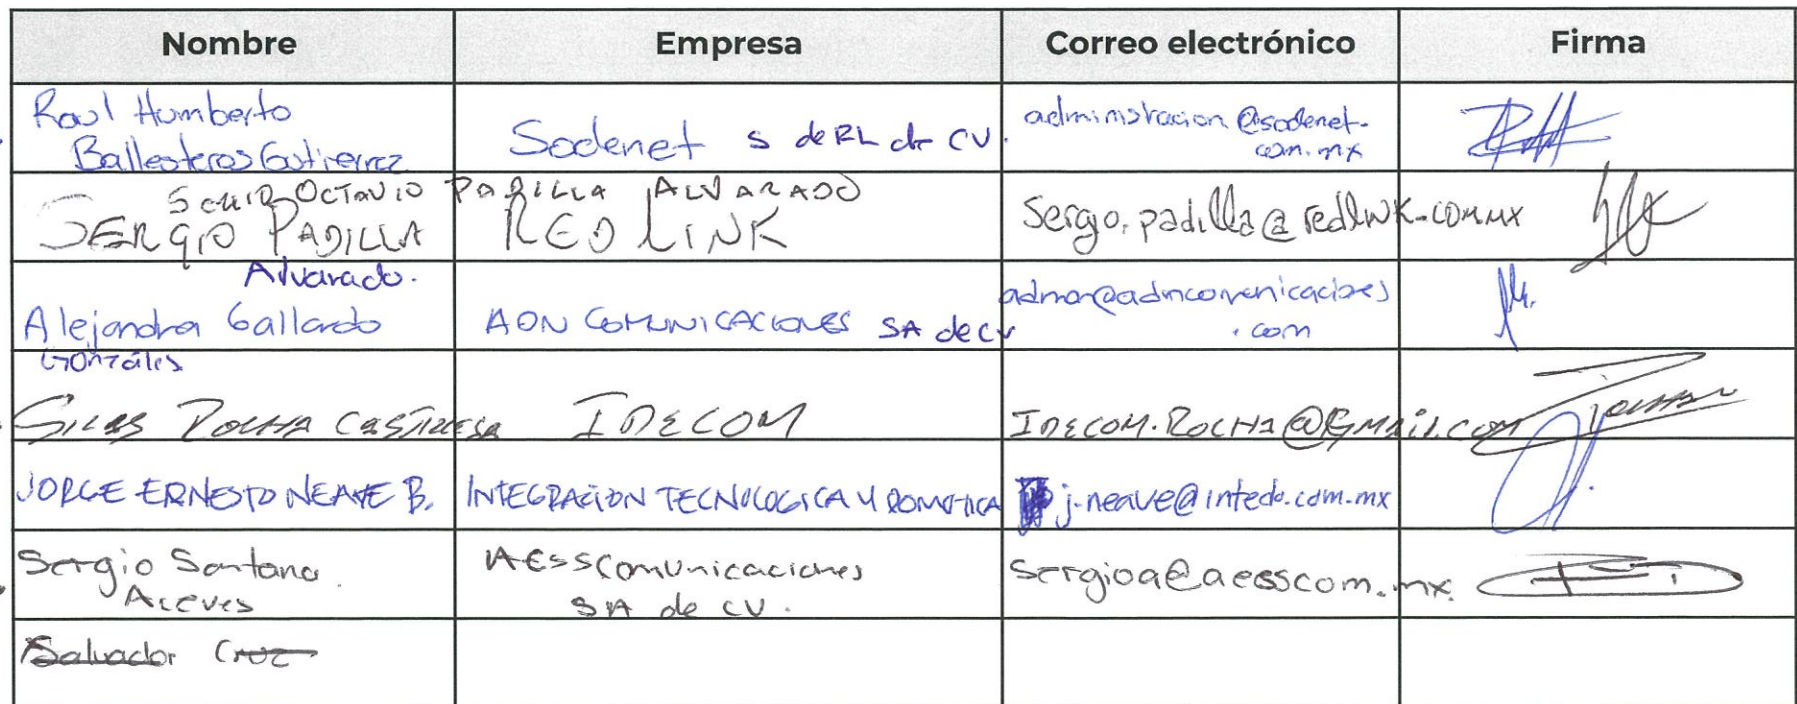 Nombre Empresa Correo electrónico Firma
Raul Humberto
Ballesteros Gutierrez
Sodenet S de RL de CV.
administracion@sodenet.
com.mx
OCTAVIO PADILLA ALVARADO
SERGIO PADILLA
RED LINK
Sergio.padilla@redlink.com.mx
Alvarado.
Alejandra Gallardo
Gonzáles
ADN COMUNICACIONES SA de CV
admon@adncomunicaciones
.com
SILAS ROCHA CASTREJSA
IDECOM
IDECOM.ROCHA@GMAIL.COM
JORGE ERNESTO NEAVE B.
INTEGRACION TECNOLOGICA Y DOMOTICA
j.neave@intedo.com.mx
Sergio Santana
Aceves
AESSComunicaciones
SA de CV.
sergioa@aesscom.mx
Salvador Cruz